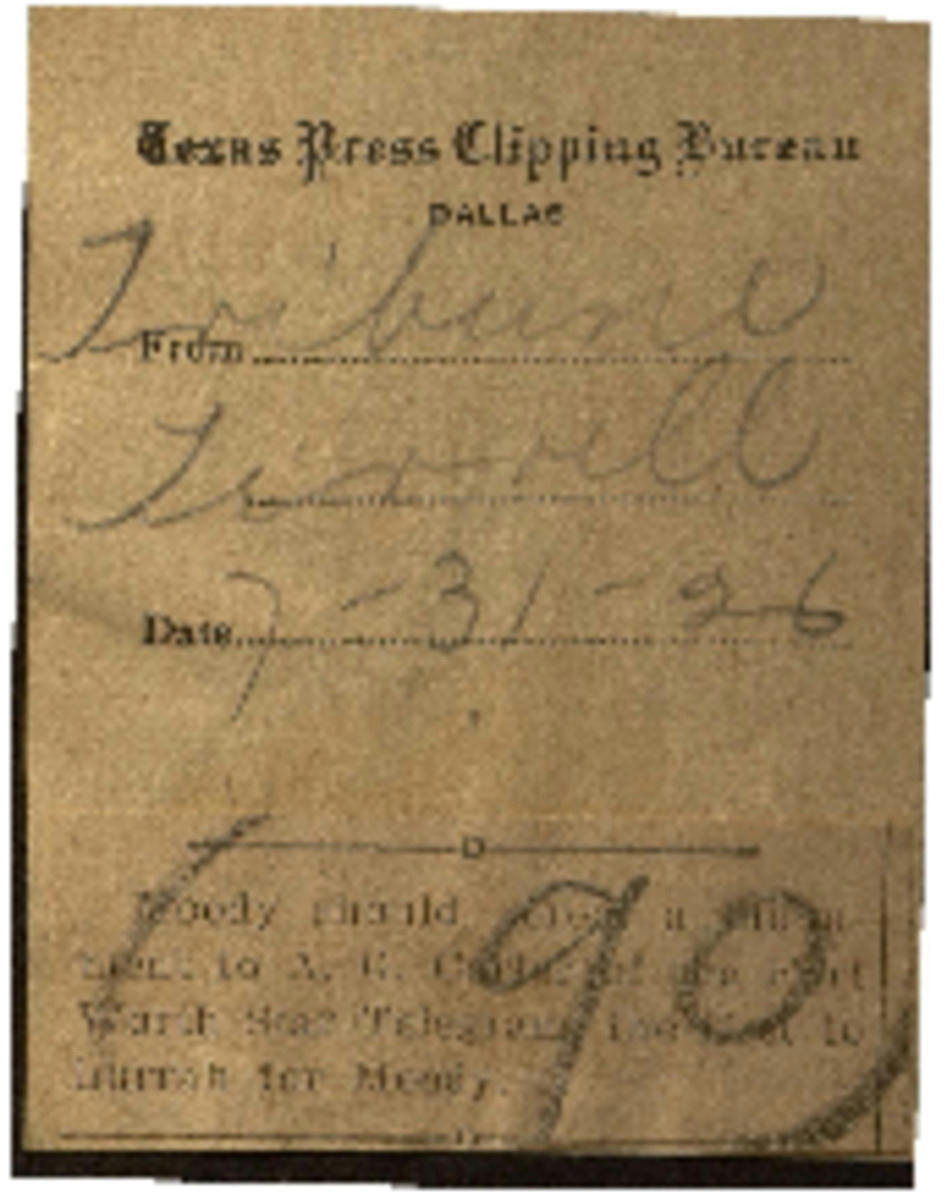 Texas Press Clipping Bureau
DALLAS
Tribune
From
Terrell
Date 7-31-26
Moody should erect a monu-
ment to A. G. Carter of the Fort
Worth Star-Telegram, the first to
hurrah for Moody.
(90)